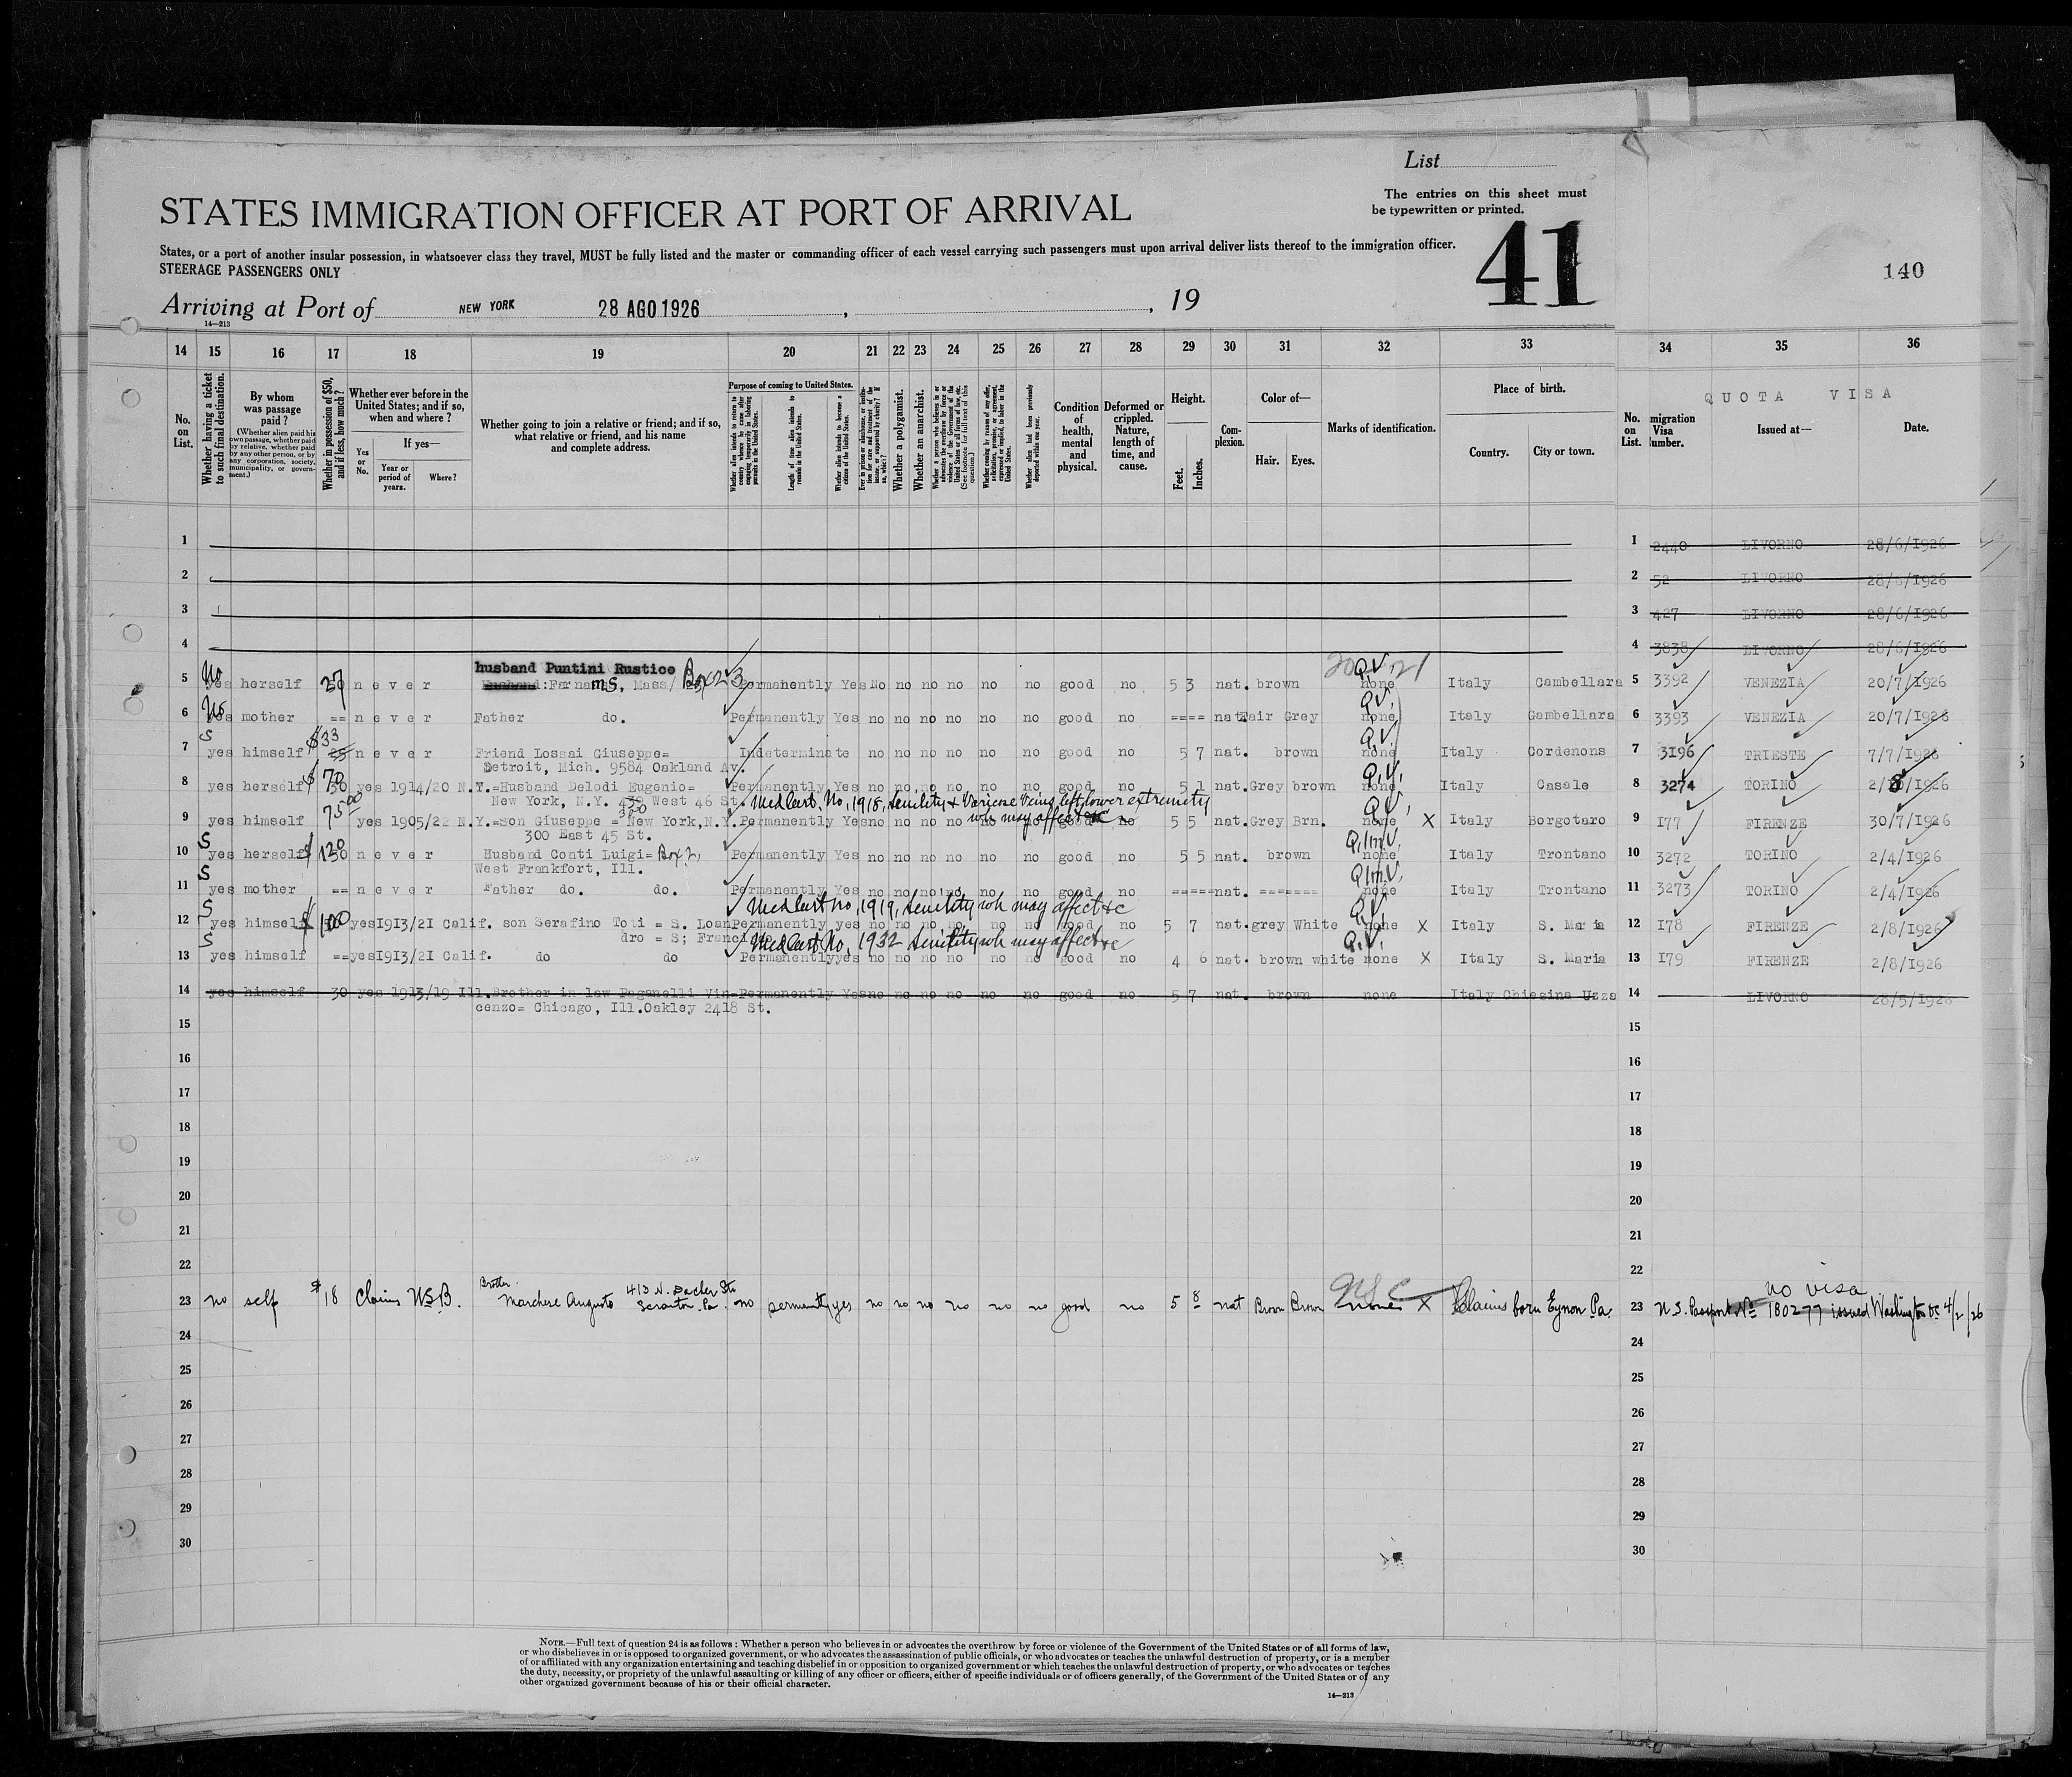 List
The entries on this sheet must
be typewritten or printed.
STATES IMMIGRATION OFFICER AT PORT OF ARRIVAL
41
140
States, or a port of another insular possession, in whatsoever class they travel, MUST be fully listed and the master or commanding officer of each vessel carrying such passengers must upon arrival deliver lists thereof to the immigration officer.
STEERAGE PASSENGERS ONLY
Arriving at Port of NEW YORK 28 AGO 1926 , , 19
14—213
14 15 16 17 18 19 20 21 22 23 24 25 26 27 28 29 30 31 32 33 34 35 36
No. on List.
Whether having a ticket to such final destination.
By whom was passage paid?
(Whether alien paid his own passage, whether paid by relative, whether paid by any other person, or by any corporation, society, municipality, or government.)
Whether in possession of $50, and if less, how much?
Whether ever before in the United States; and if so, when and where?
If yes—
Yes or No.
Year or period of years.
Where?
Whether going to join a relative or friend; and if so, what relative or friend, and his name and complete address.
Purpose of coming to United States.
Length of time alien intends to remain in the United States.
Whether alien intends to become a citizen of the United States.
Whether a polygamist.
Whether an anarchist.
Condition of health, mental and physical.
Deformed or crippled. Nature, length of time, and cause.
Height.
Feet. Inches.
Complexion.
Color of—
Hair. Eyes.
Marks of identification.
Place of birth.
Country. City or town.
No. on List.
QUOTA VISA
migration Visa umber.
Issued at—
Date.
1 1 2440 LIVORNO 28/6/1926
2 2 52 LIVORNO 28/6/1926
3 3 427 LIVORNO 28/6/1926
4 4 3838 LIVORNO 28/6/1926
husband Puntini Rustico
5 No herself 27 never Mass/ Box 23 Permanently Yes No no no no no no good no 5 3 nat. brown Q.V. none Italy Cambellara 5 3392 VENEZIA 20/7/1926
6 No mother == never Father do. Permanently Yes no no no no no no good no ==== nat. Fair Grey Q.V. none Italy Gambellara 6 3393 VENEZIA 20/7/1926
7 S yes himself $33 25 never Friend Lossai Giuseppe= Indeterminate no no no no no no good no 5 7 nat. brown Q.V. none Italy Cordenons 7 3196 TRIESTE 7/7/1926
Detroit, Mich. 9584 Oakland Av.
8 yes herself $70 yes 1914/20 N.Y.=Husband Delodi Eugenio= Permanently Yes no no no no no no good no 5 1 nat. Grey brown Q.V. none Italy Casale 8 3274 TORINO 2/8/1926
New York, N.Y. 439 West 46 St. Med Cert. No, 1918, Senility & Varicose Veins left lower extremity
wh may affect &c
9 yes himself 7500 yes 1905/22 N.Y.=son Giuseppe = New York,N.Y. Permanently Yes no no no no no no good no 5 5 nat. Grey Brn. Q.V. none X Italy Borgotaro 9 177 FIRENZE 30/7/1926
300 East 45 St.
10 S yes herself $120 never Husband Conti Luigi= Box 2, Permanently Yes no no no no no no good no 5 5 nat. brown Q.Im.V. none Italy Trontano 10 3272 TORINO 2/4/1926
West Frankfort, Ill.
11 S yes mother == never Father do. do. Permanently Yes no no no no no no good no ===== nat. ======= Q.Im.V. none Italy Trontano 11 3273 TORINO 2/4/1926
Med Cert no, 1919, Senility wh may affect &c
12 S yes himself $100 yes 1913/21 Calif. son Serafino Toti = S. Loan Permanently yes no no no no no no good no 5 7 nat. grey White Q.V. none X Italy S. Maria 12 178 FIRENZE 2/8/1926
dro = S; Franci Med Cert No, 1932 Senility wh may affect &c
13 S yes himself == yes 1913/21 Calif. do do Permanently yes no no no no no no good no 4 6 nat. brown white Q.V. none X Italy S. Maria 13 179 FIRENZE 2/8/1926
14 yes himself 30 yes 1913/19 Ill. Brother in law Paganelli Vin- Permanently Yes no no no no no no good no 5 7 nat. brown none Italy Chiesina Uzza 14 LIVORNO 28/5/1926
cenzo= Chicago, Ill. Oakley 2418 St.
15 15
16 16
17 17
18 18
19 19
20 20
21 21
22 22
no visa
23 no self $18 Claims USB. Brother Marchese Augusto 413 N. Decker St. Scranton Pa. no permently yes no no no no no no good no 5 8 nat Brown Brown none X Claims born Eynon Pa. 23 U.S. Passport No 180277 issued Washington DC 4/2/26
24 24
25 25
26 26
27 27
28 28
29 29
30 30
NOTE.—Full text of question 24 is as follows: Whether a person who believes in or advocates the overthrow by force or violence of the Government of the United States or of all forms of law,
or who disbelieves in or is opposed to organized government, or who advocates the assassination of public officials, or who advocates or teaches the unlawful destruction of property, or is a member
of or affiliated with any organization entertaining and teaching disbelief in or opposition to organized government or which teaches the unlawful destruction of property, or who advocates or teaches
the duty, necessity, or propriety of the unlawful assaulting or killing of any officer or officers, either of specific individuals or of officers generally, of the Government of the United States or of any
other organized government because of his or their official character.
14—213